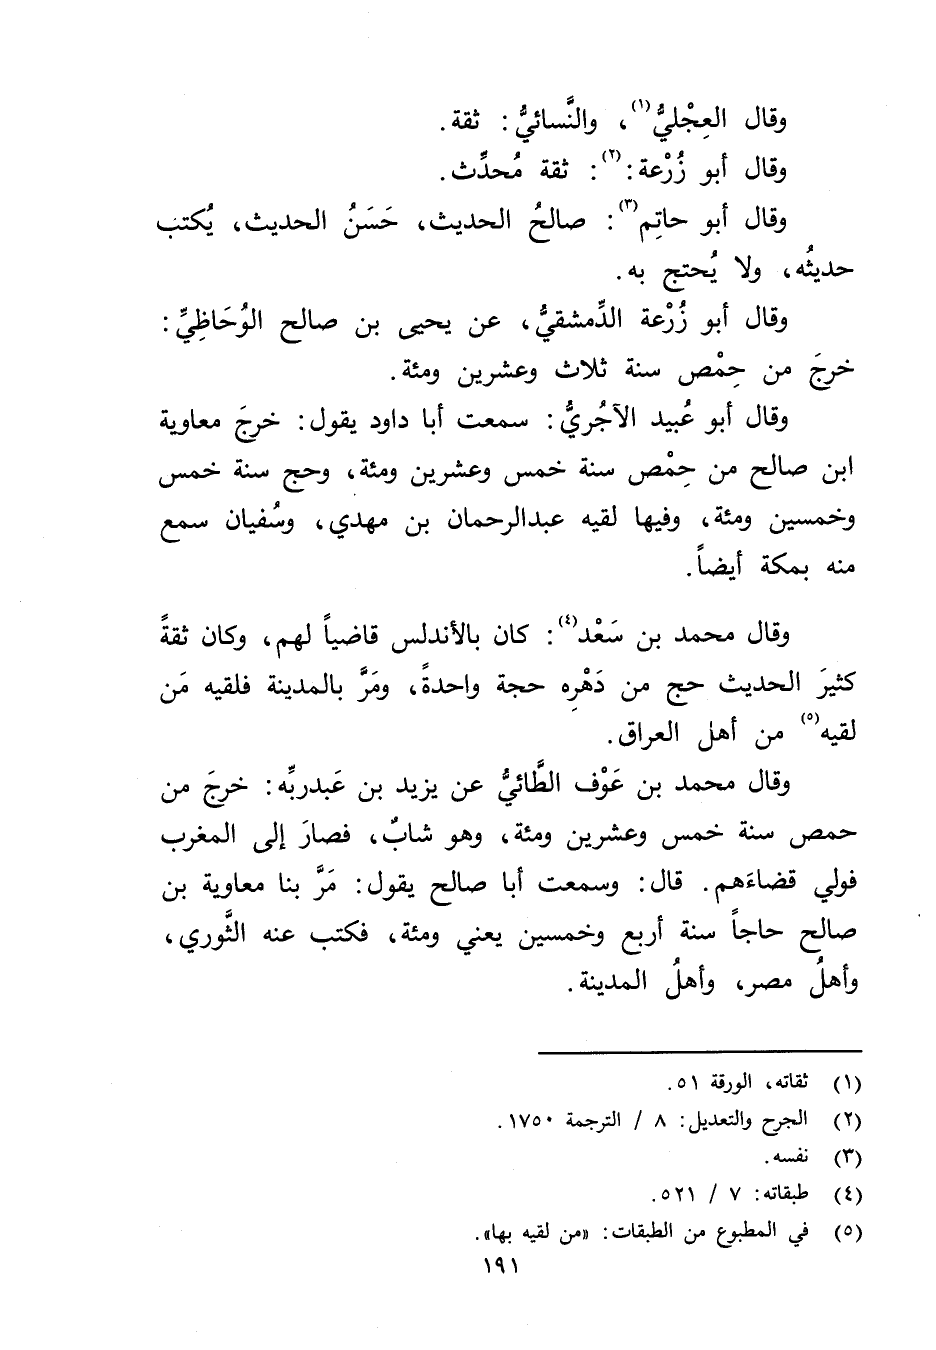 وقال العِجْليُّ(١)، والنَّسائيُّ: ثقة.
وقال أبو زُرْعة:(٢): ثقة مُحدِّث.
وقال أبو حاتِم(٣): صالحُ الحديث، حَسَنُ الحديث، يُكتب
حديثُه، ولا يُحتج به.
وقال أبو زُرْعة الدِّمشقيُّ، عن يحيى بن صالح الوُحَاظِيِّ:
خرجَ من حِمْص سنة ثلاث وعشرين ومئة.
وقال أبو عُبيد الآجُريُّ: سمعت أبا داود يقول: خرجَ معاوية
ابن صالح من حِمْص سنة خمس وعشرين ومئة، وحج سنة خمس
وخمسين ومئة، وفيها لقيه عبدالرحمان بن مهدي، وسُفيان سمع
منه بمكة أيضاً.
وقال محمد بن سَعْد(٤): كان بالأندلس قاضياً لهم، وكان ثقةً
كثيرَ الحديث حج من دَهْرِه حجة واحدةً، ومَرَّ بالمدينة فلقيه مَن
لقيه(٥) من أهل العراق.
وقال محمد بن عَوْف الطَّائيُّ عن يزيد بن عَبدربِّه: خرجَ من
حمص سنة خمس وعشرين ومئة، وهو شابٌ، فصارَ إلى المغرب
فولي قضاءَهم. قال: وسمعت أبا صالح يقول: مَرَّ بنا معاوية بن
صالح حاجاً سنة أربع وخمسين يعني ومئة، فكتب عنه الثَّوري،
وأهلُ مصر، وأهلُ المدينة.
(١) ثقاته، الورقة ٥١.
(٢) الجرح والتعديل: ٨ / الترجمة ١٧٥٠.
(٣) نفسه.
(٤) طبقاته: ٧ / ٥٢١.
(٥) في المطبوع من الطبقات: «من لقيه بها».
١٩١